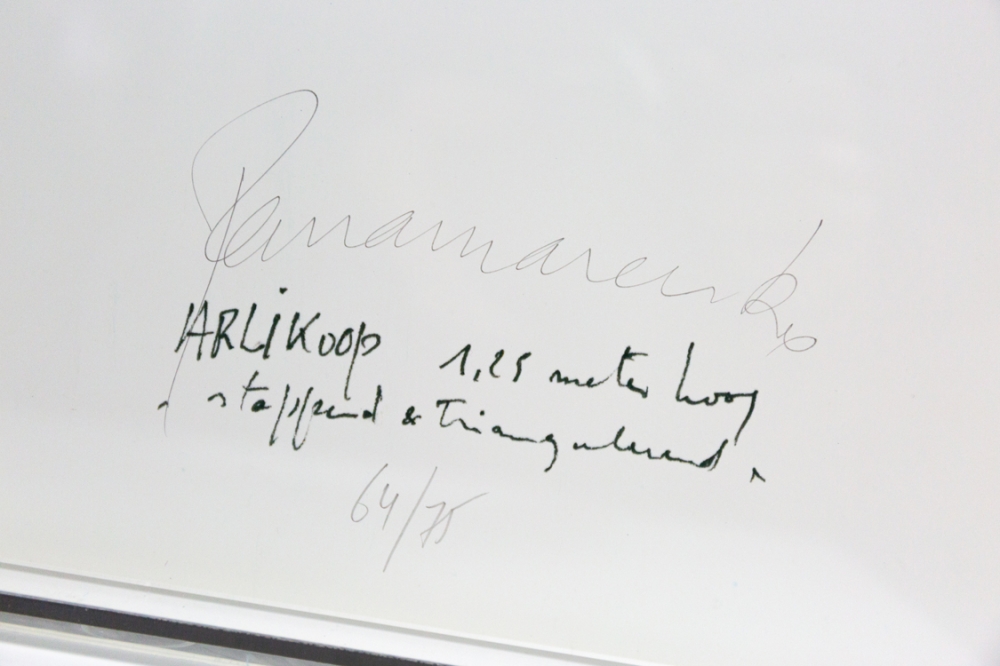 Panamarenko
ARLiKoop 1,25 meter hoog
. stappend & Triangulerend .
64/75